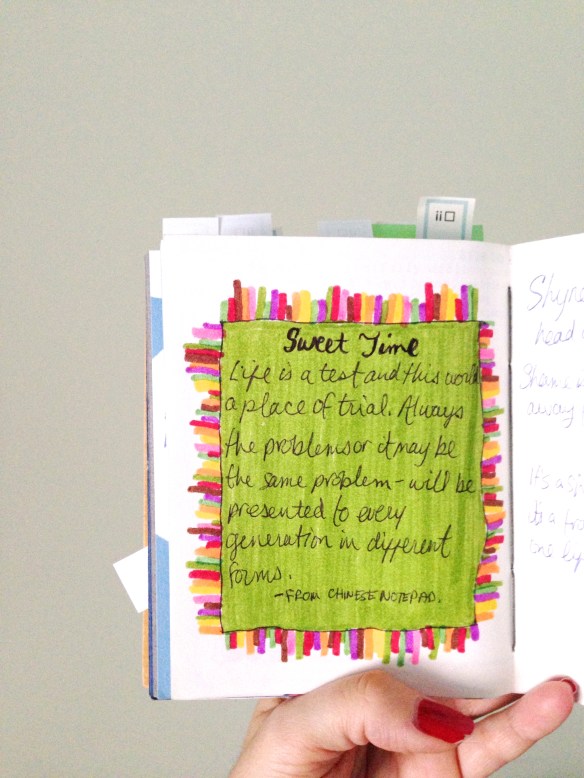 Sweet Time
Life is a test and this world
a place of trial. Always
the problems or it may be
the same problem - will be
presented to every
generation in different
forms.
- FROM CHINESE NOTEPAD.
head
Shame
away
It's a
one